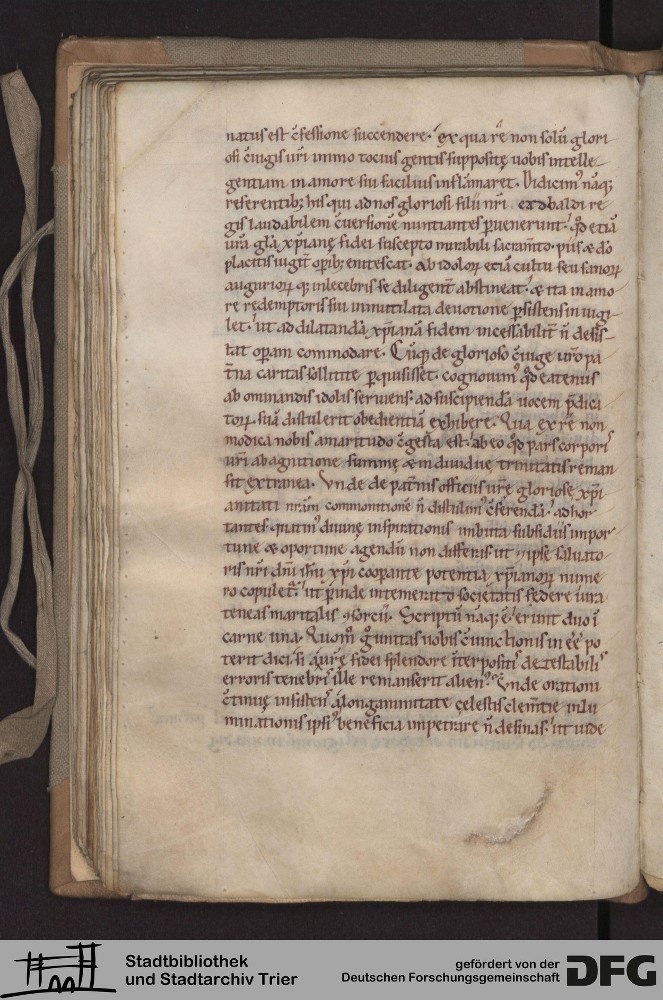 natus est c̄fessione succendere. Ex qua re non solū glori
osi c̄iugis uri immo tocius gentis suppositę uobis intelle
gentiam in amore sui facilius inflāmaret. Didicim' nāq;
referentib; his qui ad nos gloriosi filii nr̄i eodbaldi re
gis laudabilem c̄uersionē nuntiantes peruenerunt. qd etiā
ur̄a gl̄a xp̄ianę fidei suscepto mirabili sacram̄to. piis & dō
placitis iugit̄ opib; enitescat. Ab idolorꝝ etiā cultu seu fanorꝝ
auguriorꝝ q; inlecebris se diligent̄ abstineat. & ita in amo
re redemptoris sui inmutilata deuotione psistens inuigi
let. ut ad dilatandā xp̄ianā fidem incessabilit̄ n̄ desis
tat opam commodare. Cūq; de glorioso c̄iuge ur̄o pa
t̄na caritas sollicite pquisisset. cognouim' qd eatenus
ab ominandis idolis seruiens. ad suscipiendā uocem p̄dica
torꝝ suā distulerit obedientiā exhibere. Qua ex re non
modica nobis amaritudo c̄gesta est. ab eo qd pars corporis
ur̄i ab agnitione summę & indiuiduę trinitatis reman
sit extranea. Vnde de pat̄nis officiis ur̄ę gloriosę xp̄i
anitati nr̄am commonitionē n̄ distulim' c̄ferendā. adhor
tantes quatin' diuinę inspirationis inbuta subsidiis impor
tune & oportune agendū non differas. ut & ipse saluato
ris nr̄i dn̄i ih̄u xp̄i coopante potentia xp̄ianorꝝ nume
ro copulet̄. ut p̄inde intemerato societatis federe iura
teneas maritalis ɔsorcii. Scriptū nāq; ē. erunt duo ī
carne una. Quom° g° unitas uobis c̄iunctionis inee po
terit dici. si a ur̄ę fidei splendore int̄positis detestabilis
erroris tenebris ille remanserit alien'. Vnde orationi
c̄tinuę insistens a longanimitate cęlestis clem̄tię inlu
minationis ipsi' beneficia impetrare n̄ desinas. ut uide
Stadtbibliothek
und Stadtarchiv Trier
gefördert von der
Deutschen Forschungsgemeinschaft
DFG